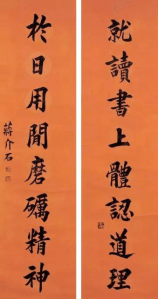 就讀書上體認道理
於日用間磨礪精神
蔣介石